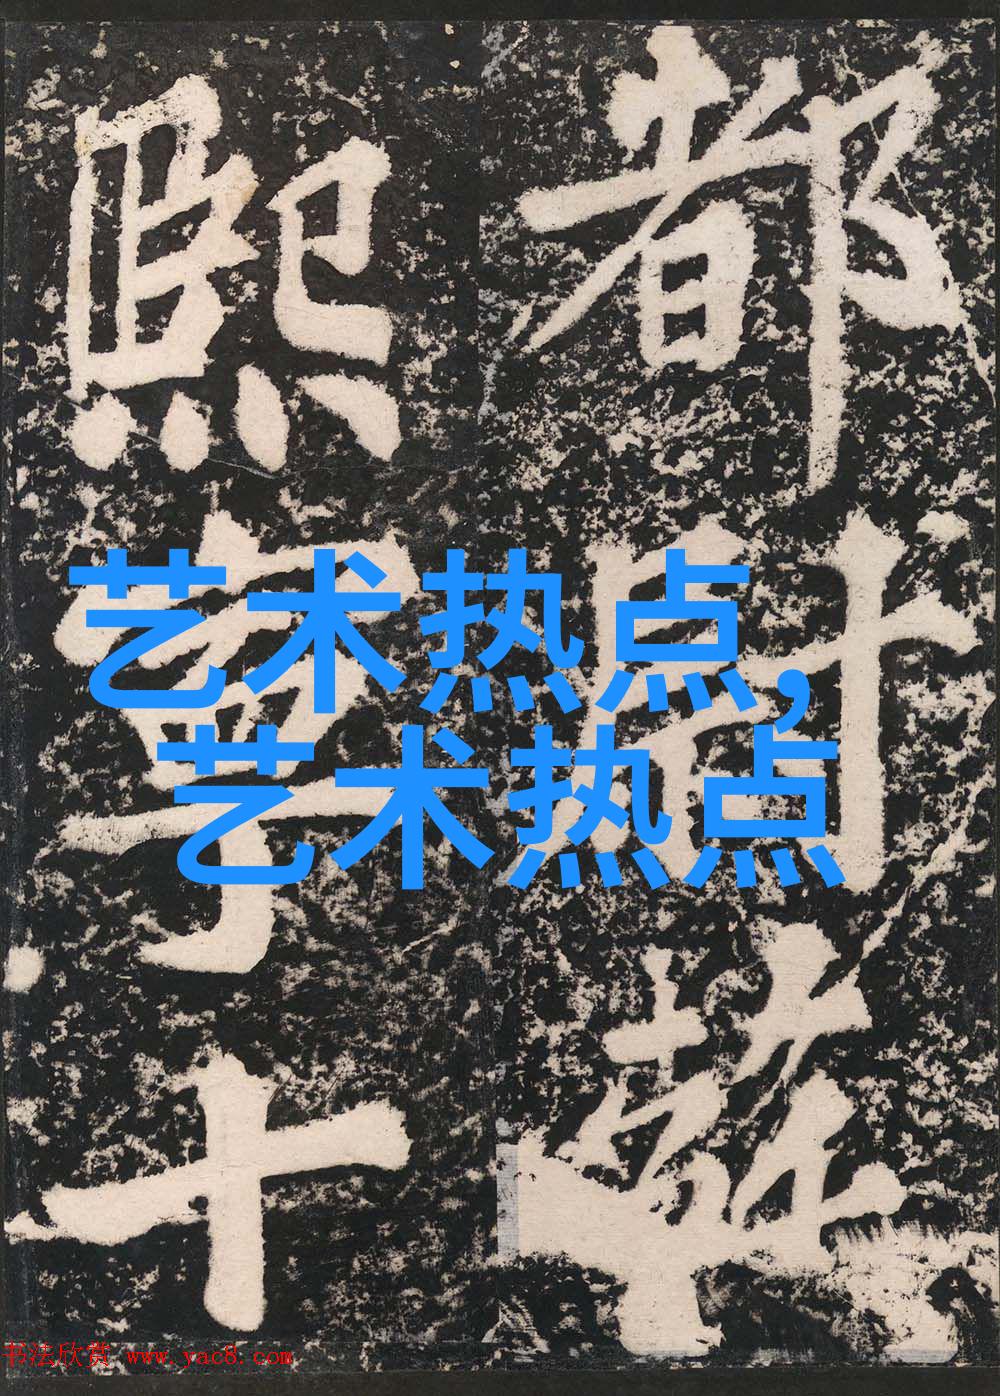 都尉蘇
熙寧十
艺术热点,
艺术热点
书法欣赏 www.yac8.com